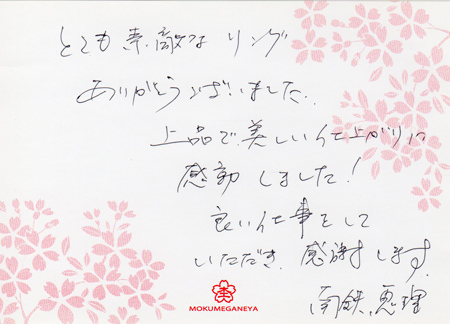 とても素敵な リング
ありがとうございました.
上品で美しい仕上がりに
感動しました!
良い仕事をして
いただき、感謝します.
恵理
MOKUMEGANEYA